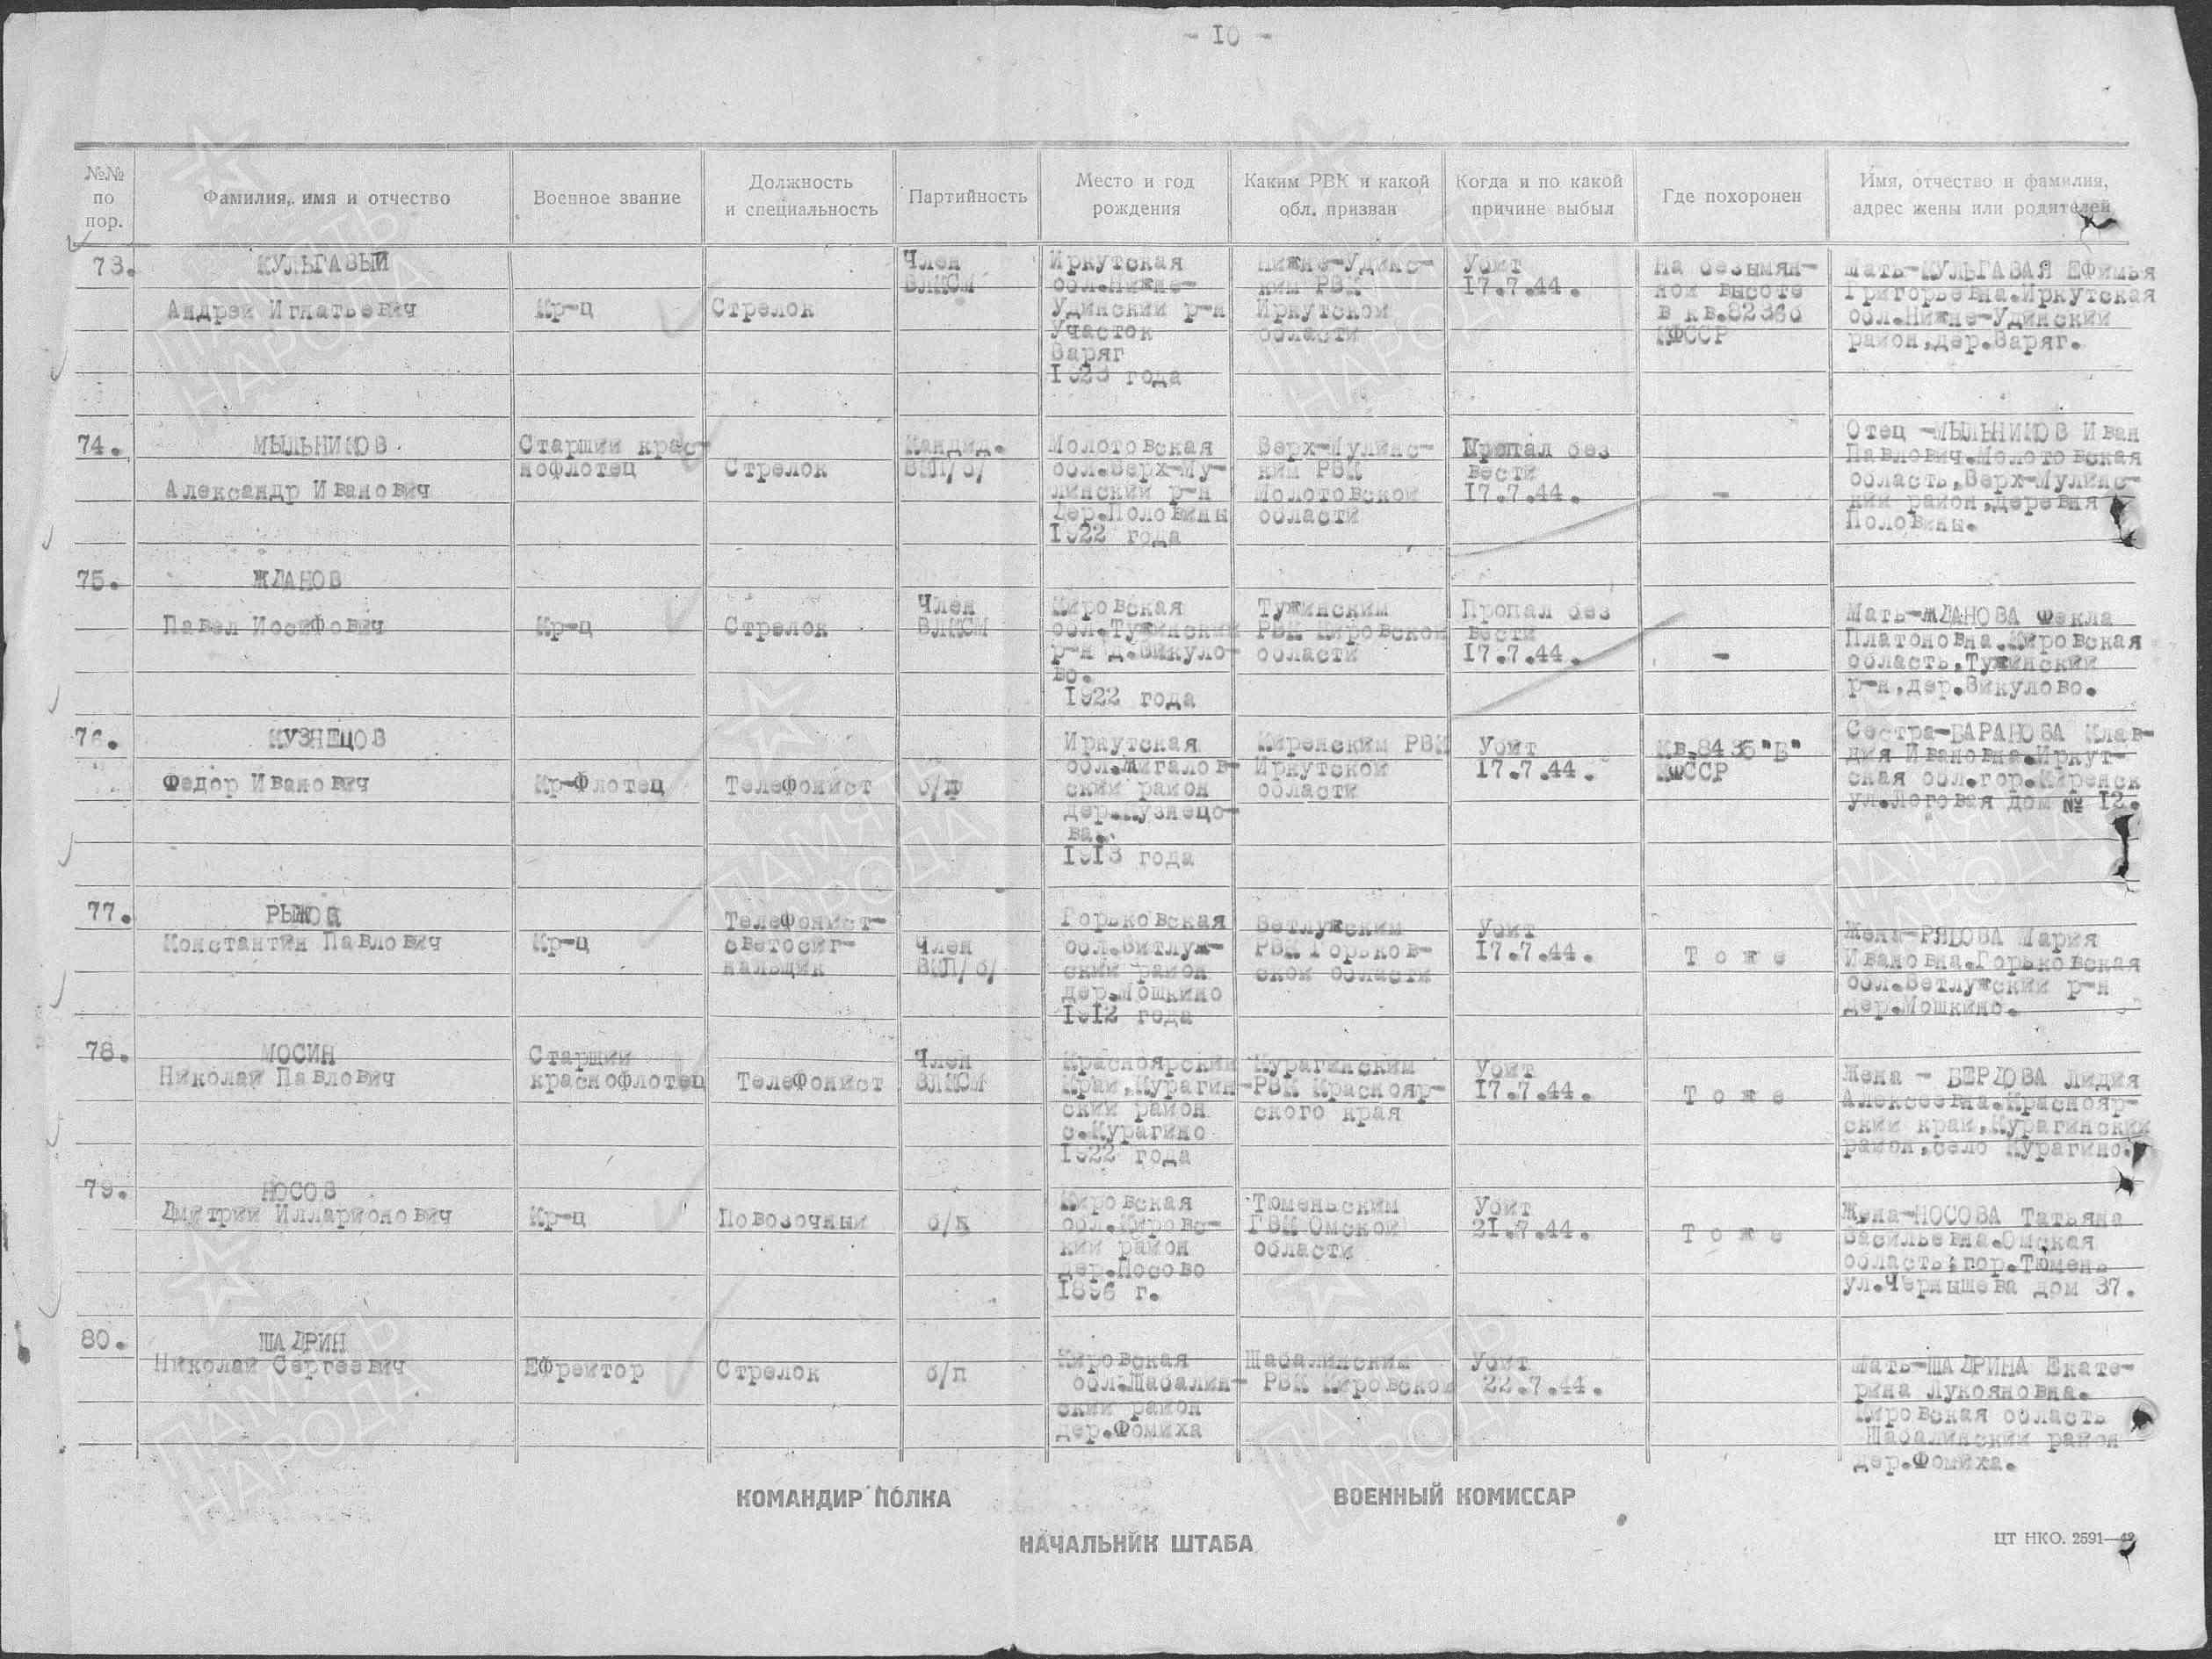 - 10 -
№№ по пор.
Фамилия, имя и отчество
Военное звание
Должность и специальность
Партийность
Место и год рождения
Каким РВК и какой обл. призван
Когда и по какой причине выбыл
Где похоронен
Имя, отчество и фамилия, адрес жены или родителей
73.
КУЛЬГАВЫЙ
Андрей Игнатьевич
Кр-ц
Стрелок
Член
ВЛКСМ
Иркутская
обл.Нижне-
Удинский р-н
Участок
Варяг
1923 года
Нижне-Удинс-
ким РВК
Иркутской
области
Убит
17.7.44.
На безымян-
ной высоте
в кв.8236б
КФССР
Мать-КУЛЬГАВАЯ Ефимья
Григорьевна.Иркутская
обл.Нижне-Удинский
район,дер.Варяг.
74.
МЫЛЬНИКОВ
Александр Иванович
Старший крас-
нофлотец
Стрелок
Кандид.
ВКП/б/
Молотовская
обл.Верх-Му-
линский р-н
Дер.Половины
1922 года
Верх-Мулинс-
ким РВК
Молотовской
области
Пропал без
вести
17.7.44.
-
Отец -МЫЛЬНИКОВ Иван
Павлович.Молотовская
область,Верх-Мулинс-
кий район,деревня
Половины.
75.
ЖДАНОВ
Павел Иосифович
Кр-ц
Стрелок
Член
ВЛКСМ
Кировская
обл.Тужинский
р-н д.Зикуло-
во.
1922 года
Тужинским
РВК Кировской
области
Пропал без
вести
17.7.44.
-
Мать-ЖДАНОВА Фекла
Платоновна.Кировская
область,Тужинский
р-н,дер.Зикулово.
76.
КУЗНЕЦОВ
Федор Иванович
Кр-Флотец
Телефонист
б/п
Иркутская
обл.Жигалов-
ский район
дер.Кузнецо-
ва.
1913 года
Киренским РВК
Иркутской
области
Убит
17.7.44.
Кв.8436"Б"
КФССР
Сестра-БАРАНОВА Клав-
дия Ивановна.Иркут-
ская обл.гор.Киренск
ул.Логовая дом № 12.
77.
РЫЖОВ
Константин Павлович
Кр-ц
Телефонист-
светосиг-
нальщик
Член
ВКП/б/
Горьковская
обл.Витлуж-
ский район
дер.Мошкино
1912 года
Ветлужским
РВК Горьков-
ской области
Убит
17.7.44.
Т о ж е
Ивановна.Горьковская
обл.Ветлужский р-н
дер.Мошкино.
78.
МОСИН
Николай Павлович
Старший
краснофлотец
Телефонист
Член
ВЛКСМ
Красноярский
Край,Курагин-
ский район
с.Курагино
1922 года
Курагинским
РВК Краснояр-
ского края
Убит
17.7.44.
Т о ж е
Жена - БЕРДОВА Лидия
Алексеевна.Краснояр-
ский край,Курагинский
район,село Курагино.
79.
НОСОВ
Дмитрий Илларионович
Кр-ц
Повозочный
б/к
Кировская
обл.Кировс-
кий район
дер.Носово
1896 г.
Тюменьским
ГВК Омской
области
Убит
21.7.44.
Т о ж е
Жена-НОСОВА Татьяна
Васильевна.Омская
область:гор.Тюмень
ул.Чернышева дом 37.
80.
ШАДРИН
Николай Сергеевич
Ефрейтор
Стрелок
б/п
Кировская
обл.Шабалин-
ский район
дер.Фомиха
Шабалинским
РВК Кировской
Убит
22.7.44.
Мать-ШАДРИНА Екате-
рина Лукояновна.
Кировская область
Шабалинский район
дер.Фомиха.
КОМАНДИР ПОЛКА
ВОЕННЫЙ КОМИССАР
НАЧАЛЬНИК ШТАБА
ЦТ НКО. 2591—
ПАМЯТЬ
НАРОДА